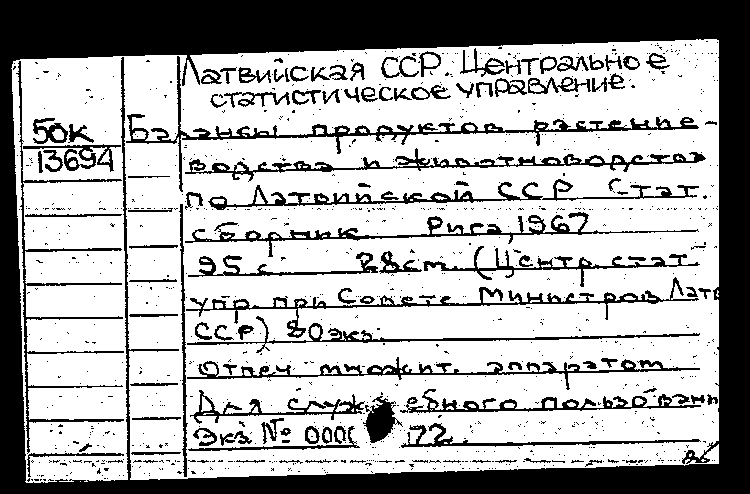 Латвийская ССР. Центральное
статистическое управление.
50К Балансы продуктов растение-
13694 водства и животноводства
по Латвийской ССР Стат.
сборник Рига, 1967
95 с. 28 см. (Центр. стат.
упр. при Совете Министров Латв
ССР). 80 экз.
Отпеч множит. аппаратом
Для служебного пользован
Экз. № 000 72.